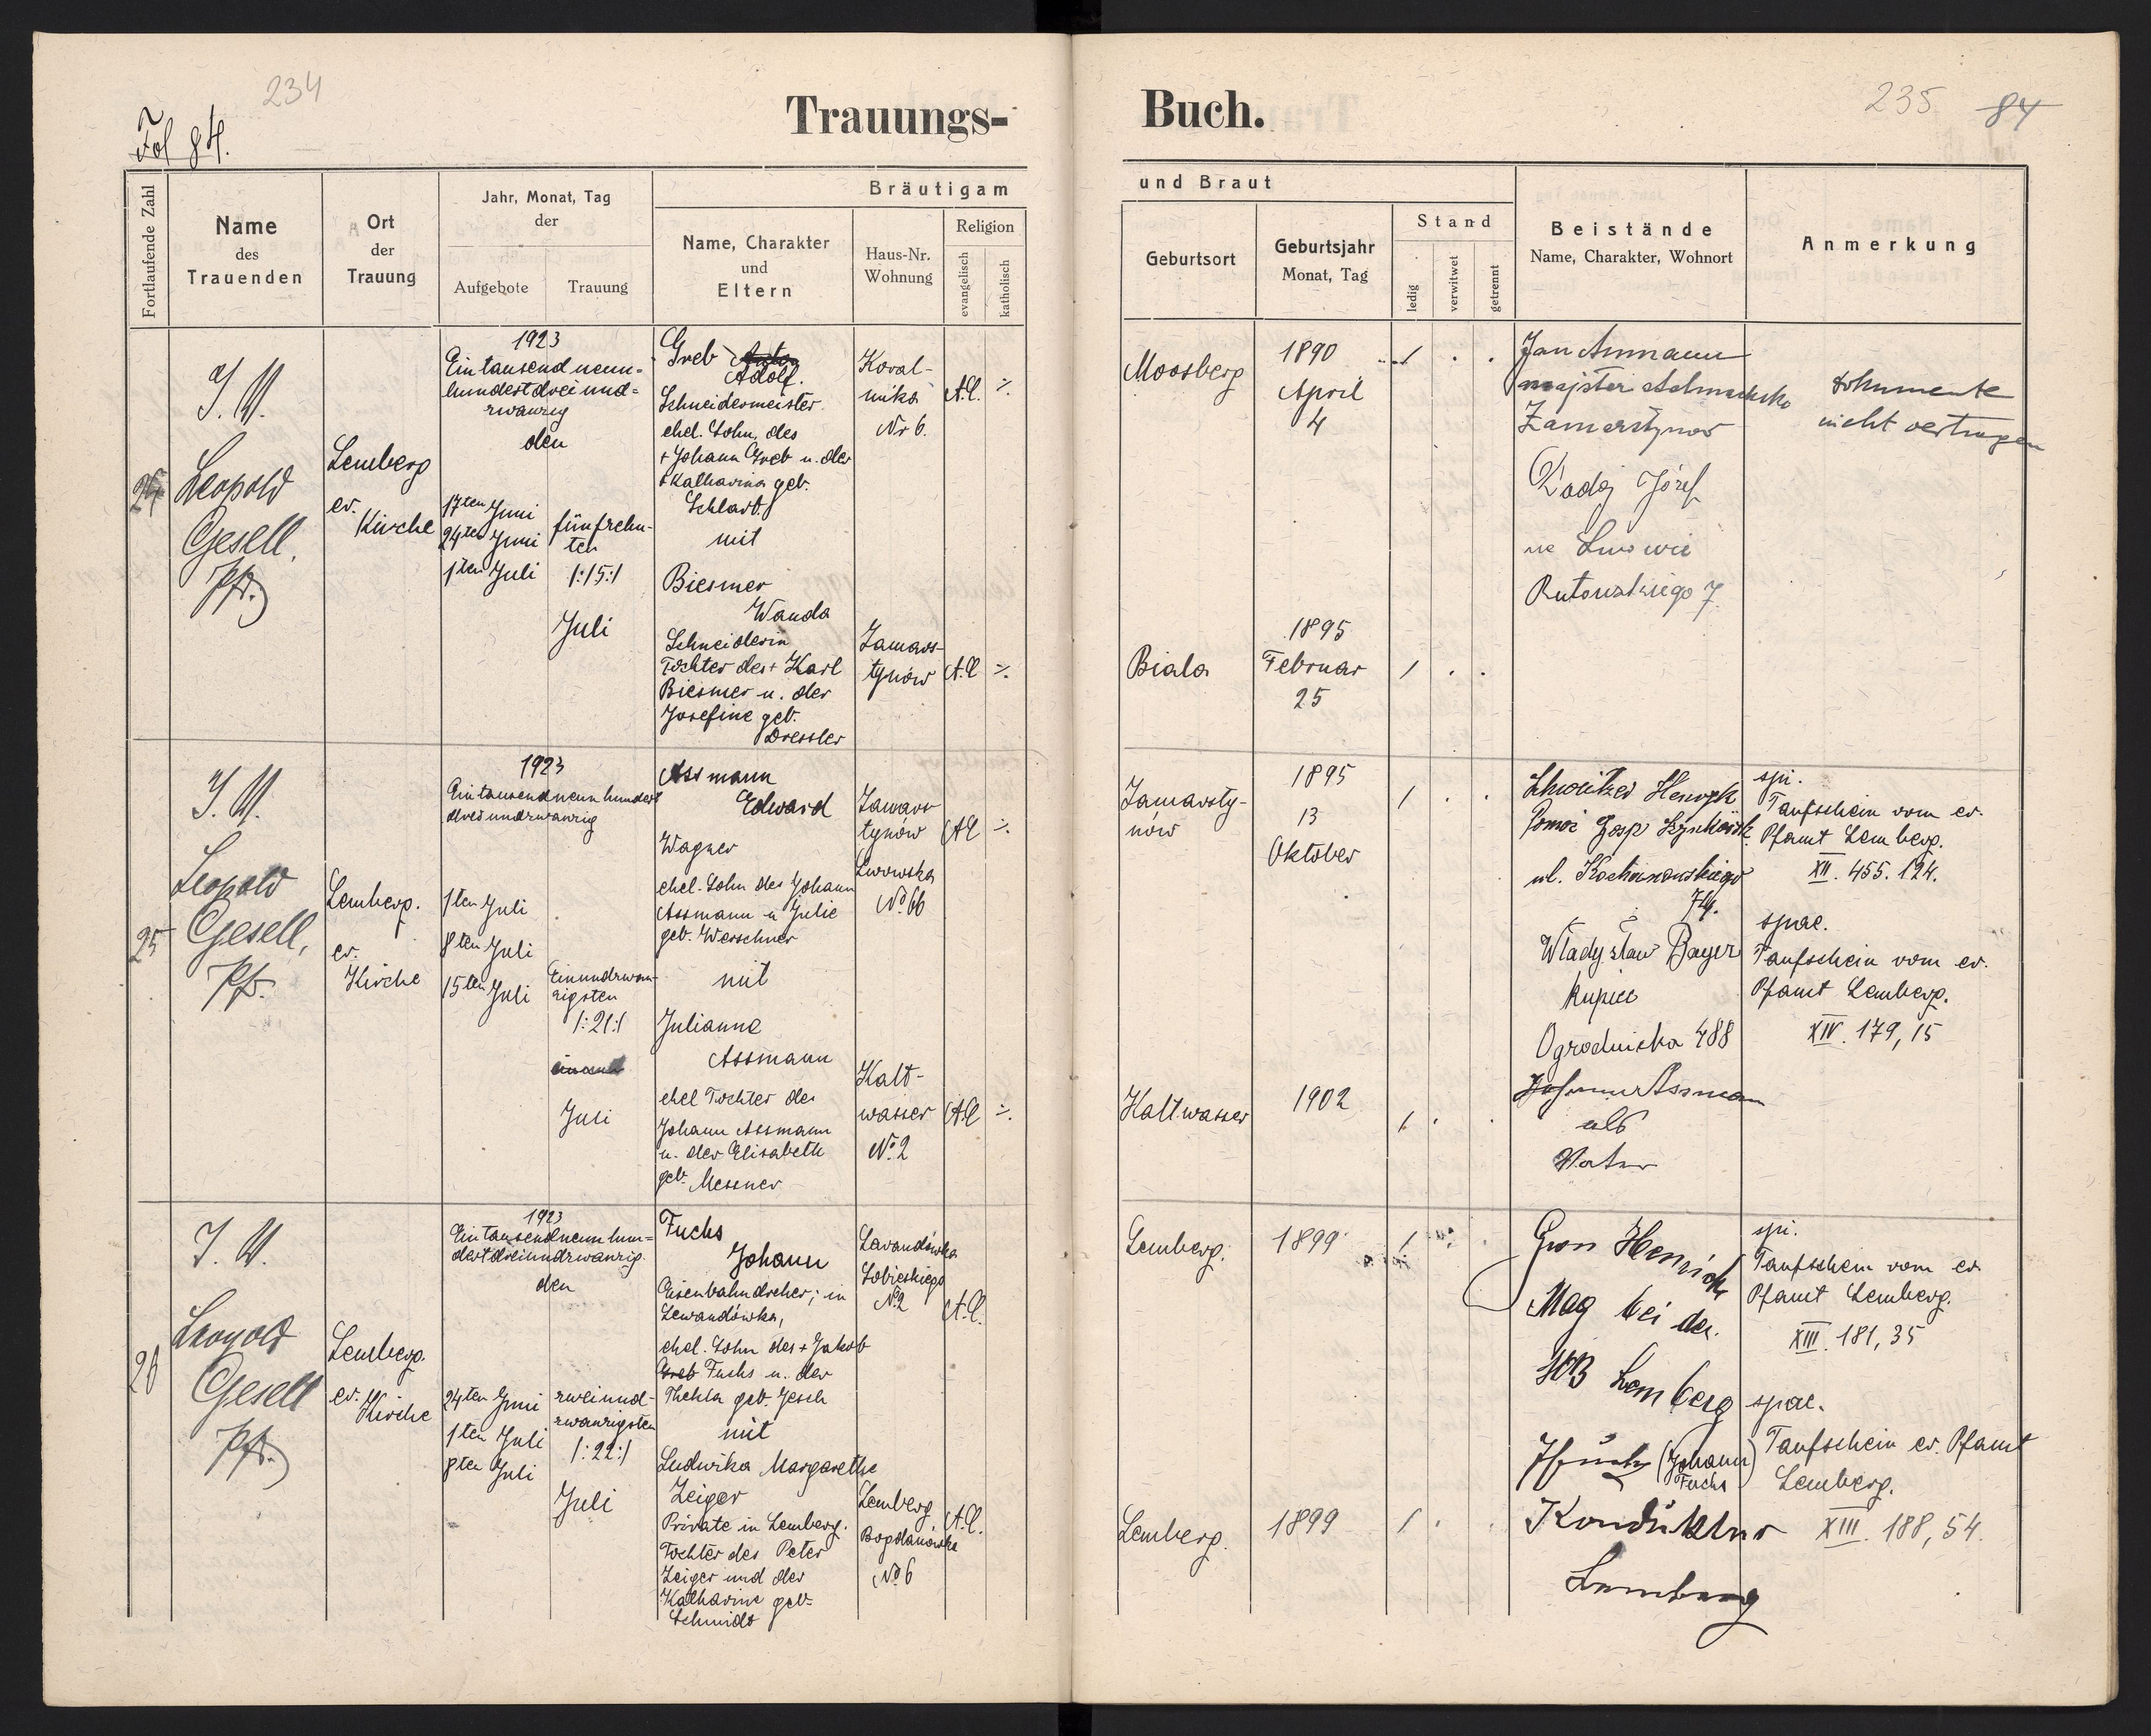 234
Fol 84.
Trauungs-
Fortlaufende Zahl
Name
des
Trauenden
Ort
der
Trauung
Jahr, Monat, Tag
der
Aufgebote
Trauung
Bräutigam
Name, Charakter
und
Eltern
Haus-Nr.
Wohnung
Religion
evangelisch
katholisch
Leopold
Gesell.
Pfr.
Lemberg
ev.
Kirche
1923
Eintausend neun=
hundertdreiund=
zwanzig
den
17ten Juni
24ten Juni
1ten Juli
fünfzehn-
ten
/:15:/
Juli
Greb
Adolf.
Schneidermeister
ehel. Sohn, des
+ Johann Greb u. der
+ Katharina geb.
Schlarb.
mit
Biesmer
Wanda
Schneiderin
Tochter des + Karl
Biesmer u. der
Josefine geb.
Dressler
Koral-
nika
Nr 6.
A.C.
Zamars-
tynów
A.C.
25
Leopold
Gesell,
Pfr.
Lemberg.
ev.
Kirche
1923
Eintausendneunhundert
dreiundzwanzig
1ten Juli
8ten Juli
15ten Juli
Einundzwan-
zigsten
/:21:/
Juli
Assmann
Edward
Wagner
ehel. Sohn des Johann
Assmann u Julie
geb. Werschner
mit
Julianne
Assmann
ehel Tochter des
Johann Assmann
u. der Elisabeth
geb. Messner
Zamars
tynów
Lwowska
No 66
AC
Kalt-
wasser
No 2
A.C
26
Leopold
Gesell
Pfr.
Lemberg.
ev.
Kirche
1923
Eintausendneunhun=
dertdreiundzwanzig.
den
24ten Juni
1ten Juli
8ten Juli
zweiund-
zwanzigsten
/:22:/
Juli
Fuchs
Johann
Eisenbahndreher; in
Lewandówka,
ehel. Sohn des + Jakob
Greb Fuchs u. der
Thekla geb. Jesch
mit
Ludwika Margarethe
Zeiger
Private in Lemberg.
Tochter des Peter
Zeiger und der
Katharine geb.
Schmidt
Lavandówka
Sobieskiego
No 2
A.C.
Lemberg
Bogdanówka
No 6
A.C.
235 84
Buch.
und Braut
Geburtsort
Geburtsjahr
Monat, Tag
Stand
ledig
verwitwet
getrennt
Beistände
Name, Charakter, Wohnort
Anmerkung
Moosberg
1890
April
4
Jan Assmann
majster
Zamarstynow
Józef
Rutowskiego 7.
Dokumente
nicht
Biala
1895
Februar
25
Zamarsty-
nów
1895
13
Oktober
ul. Kochanowskiego
74.
Władysław Bayer
kupiec
Ogrodnicka 488
Johann Assmann
als
Vater
spi.
Taufschein vom ev.
Pfamt Lemberg.
XII. 455. 124.
spae.
Taufschein vom ev.
Pfamt Lemberg.
XIV. 179, 15
Kaltwasser
1902
Lemberg.
1899
Gros Henrich
Mag bei der
Lemberg
(Johann
Fuchs)
Konduktur
Lemberg
spi.
Taufschein vom ev
Pfamt Lemberg.
XIII. 181, 35
spae.
Taufschein ev. Pfamt
Lemberg.
XIII. 188, 54.
Lemberg.
1899